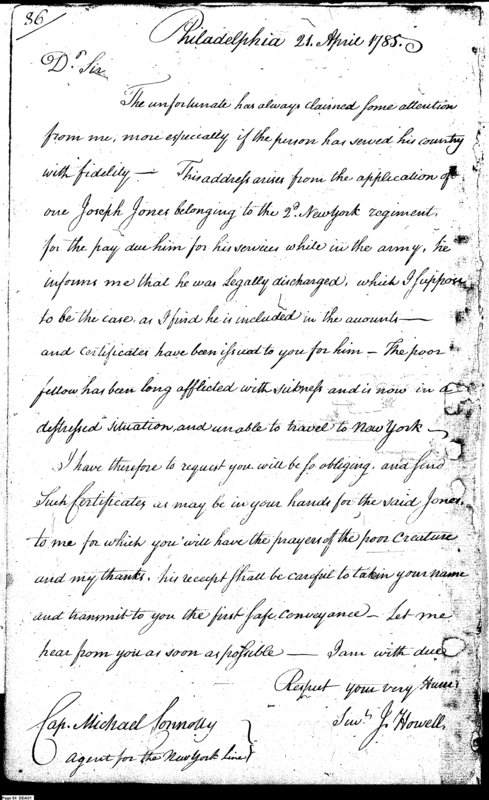 86/
Philadelphia 21. April 1785.
Dr. Sir
The unfortunate has always claimed some attention
from me, more especially if the person has served his country
with fidelity — This address arises from the application of
one Joseph Jones belonging to the 2d. New York regiment,
for the pay due him for his services while in the army, he
informs me that he was Legally discharged, which I suppose
to be the case, as I find he is included in the accounts —
and certificates have been issued to you for him — The poor
fellow has been long afflicted with sickness and is now in a
distressed situation, and unable to travel to New York —
I have therefore to request you will be so obliging, and send
Such Certificates as may be in your hands for the said Jones
to me for which you will have the prayers of the poor Crearture
and my thanks. his receipt shall be careful to take in your name
and transmit to you the first safe conveyance — Let me
hear from you as soon as possible — I am with due
Respect your very Hum:
Servt. J. Howell
Cap. Michael Connolly
agent for the New York Line
Page 94